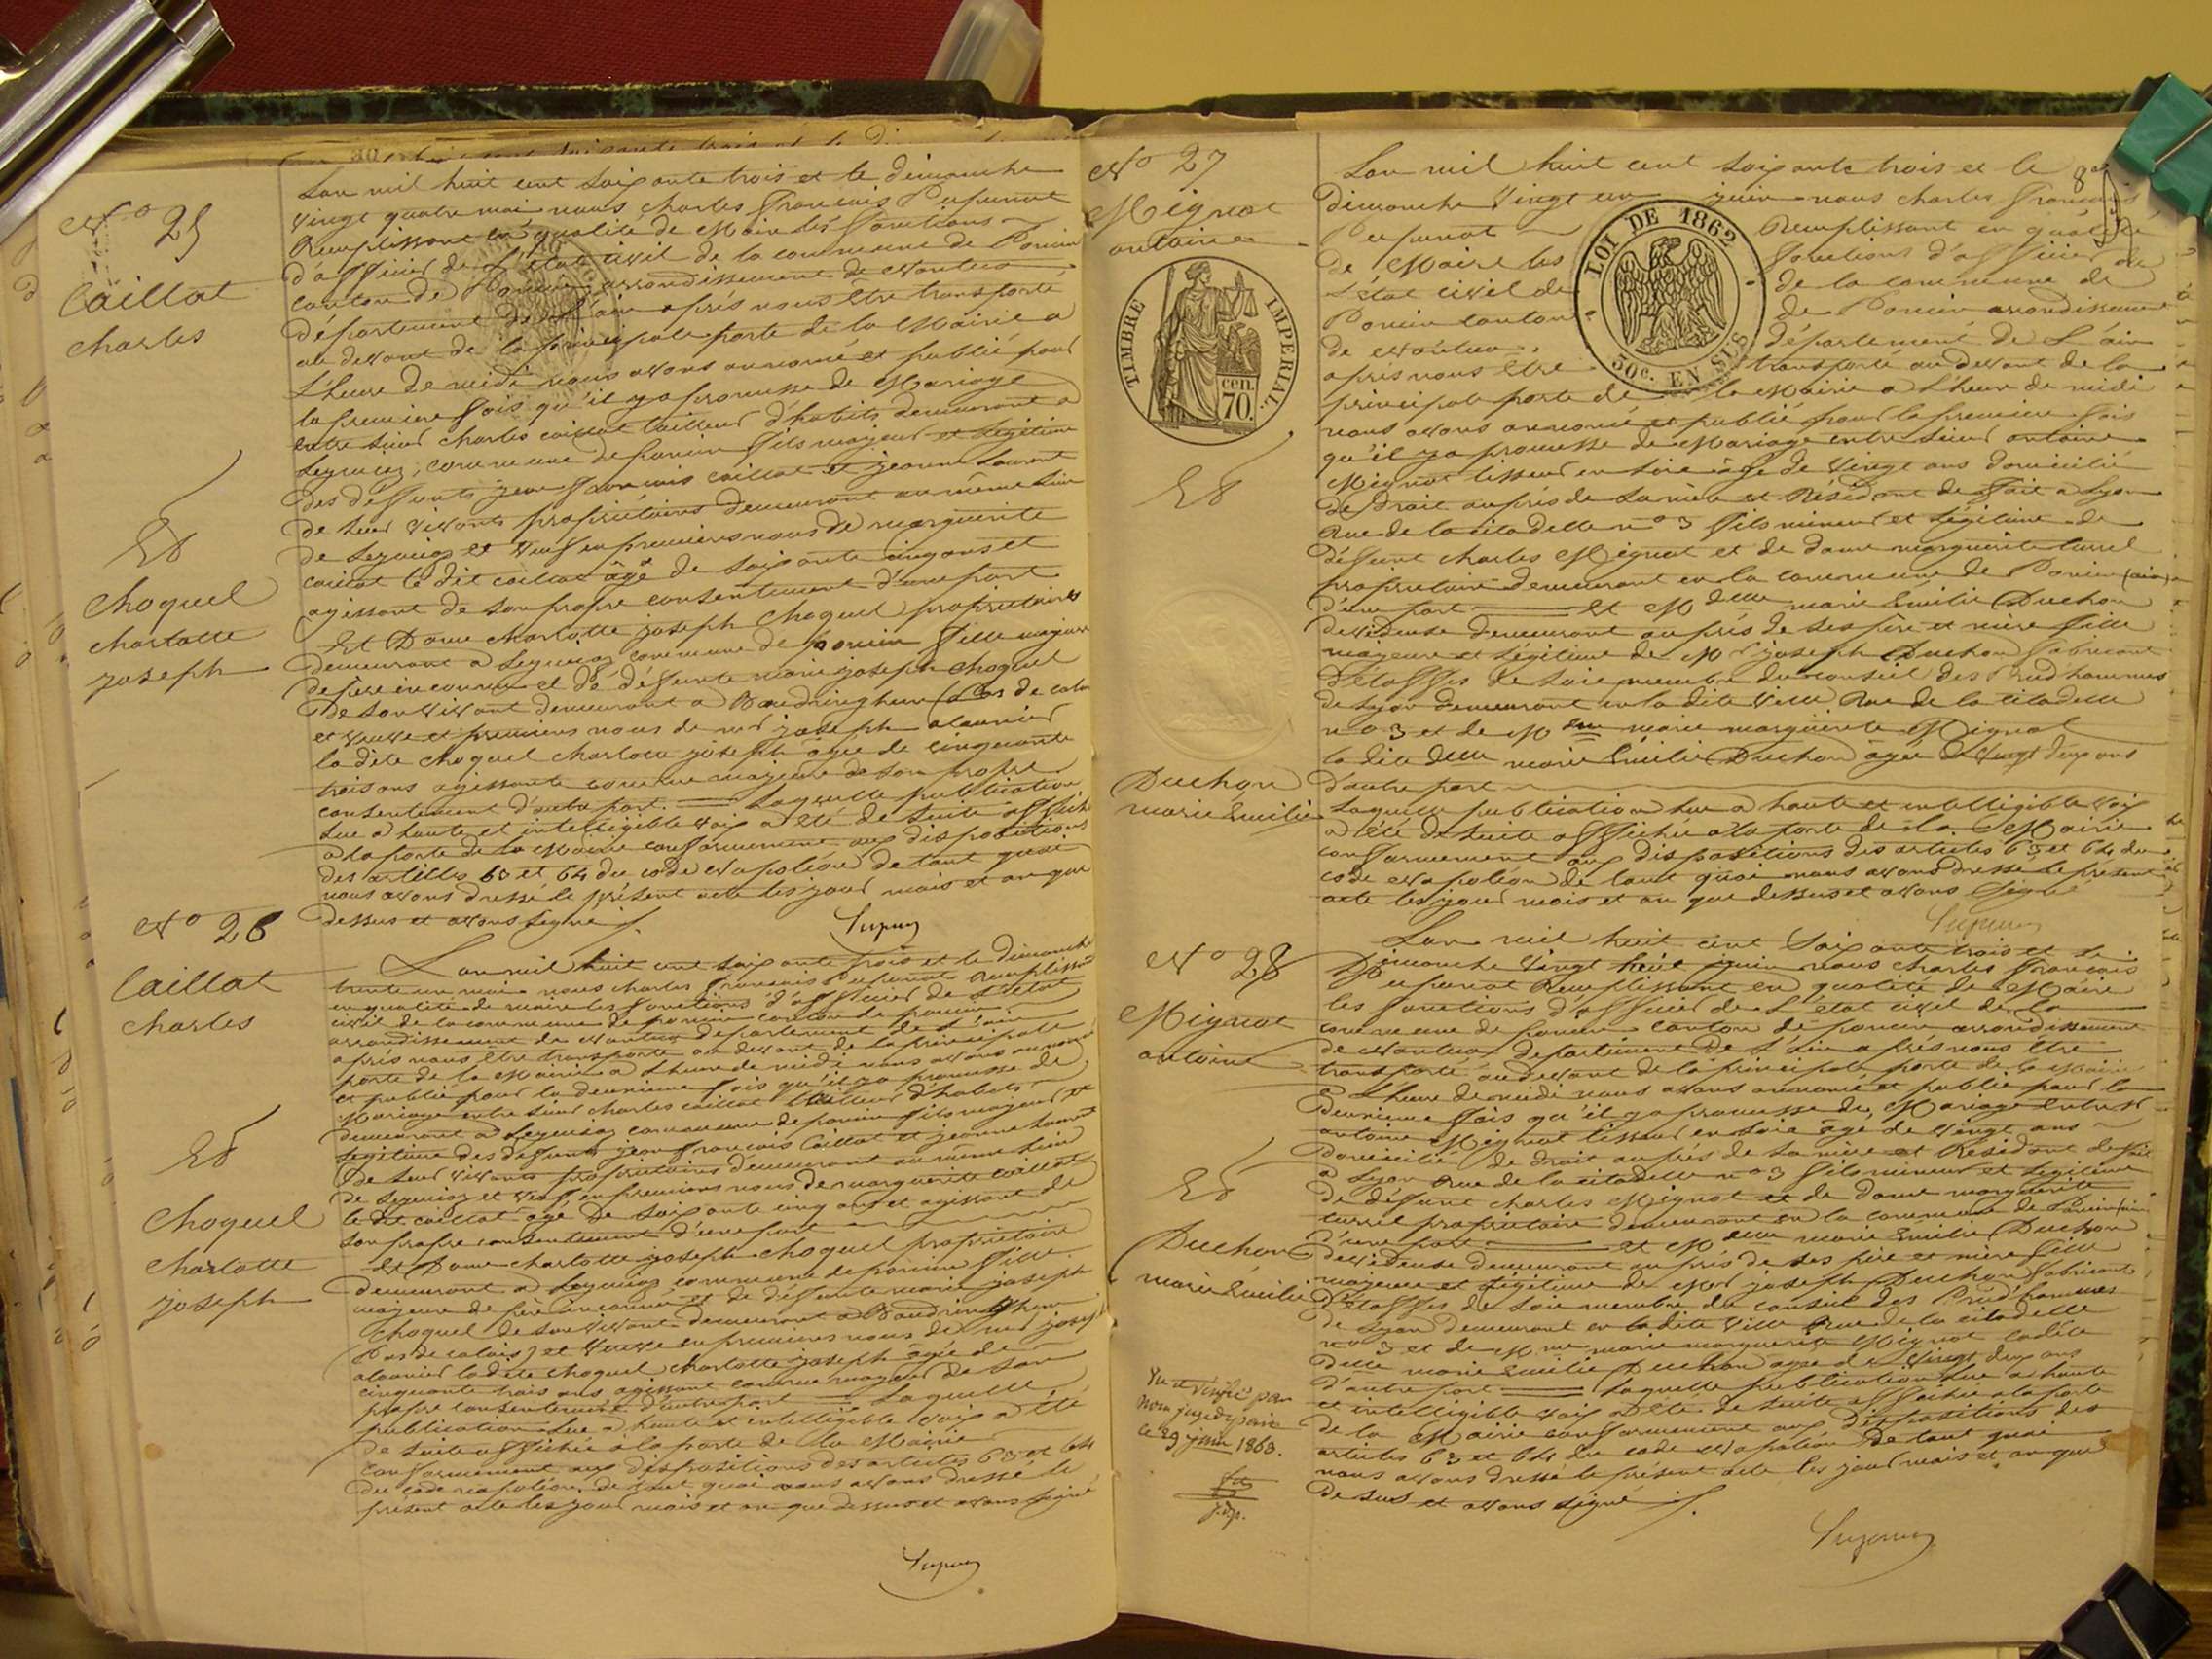 N° 25
Caillat
Charles
Et
Choquel
charlotte
joseph
L'an mil huit cent soixante trois et le dimanche
vingt quatre mai nous charles françois
Remplissant en qualité de Maire les fonctions
d'officier de l'état civil de la commune de Poncin
canton de Poncin arrondissement de Nantua
département de L'ain après nous être transporté
au devant de la principale porte de la Mairie a
L'heure de midi nous avons annoncé et publié pour
la premiere fois qu'il y a promesse de Mariage
entre sieur charles caillat tailleur d'habits demeurant a
commune de poncin fils majeur et légitime
des défunts jean francois caillat et jeanne
de leur vivants propriétaires demeurant au même lieu
de et veuf en premieres noces de marguerite
caillat le dit caillat âgé de soixante cinq ans et
agissant de son propre consentement d'une part
Et Dame charlotte joseph choquel propriétaire
demeurant a commune de poncin fille majeure
de père inconnu et de défunte marie joseph choquel
de son vivant demeurant a Baudringhem (Pas de calais
et veuve en premieres noces de joseph
la dite choquel charlotte joseph âgée de cinquante
trois ans agissante comme majeure de son propre
consentement d'autre part. Laquelle publication
lue a haute et intelligible voix a été de suite affichée
a la porte de la Mairie conformément aux dispositions
des articles 63 et 64 du code Napoléon de tout quoi
nous avons dressé le présent acte les jour mois et an que
dessus et avons signé
N° 26
Caillat
Charles
Et
Choquel
charlotte
joseph
L'an mil huit cent soixante trois et le dimanche
trente un mai nous charles francois remplissant
en qualité de maire les fonctions d'officier de l'état
civil de la commune de poncin canton de poncin
arrondissement de Nantua département de L'ain
après nous être transporté au devant de la principale
porte de la Mairie a L'heure de midi nous avons annoncé
et publié pour la deuxieme fois qu'il y a promesse de
Mariage entre sieur charles caillat tailleur d'habits
demeurant a commune de poncin fils majeur et
légitime des défunts jean francois Caillat et jeanne
de leur vivants propriétaires demeurant au même lieu
de et veuf en premieres noces de marguerite caillat
le dit caillat âgé de soixante cinq ans et agissant de
son propre consentement d'une part
Et Dame charlotte joseph choquel propriétaire
demeurant a commune de poncin fille
majeure de père inconnu et de défunte marie joseph
choquel de son vivant demeurant a Baudringhem
(Pas de calais) et veuve en premieres noces de joseph
la dite choquel charlotte joseph âgée de
cinquante trois ans agissant comme majeur de son
propre consentement d'autre part Laquelle
publication lue a haute et intelligible voix a été
de suite affichée a la porte de la Mairie
conformément aux dispositions des articles 63 et 64
du code napoléon de tout quoi nous avons dressé le
présent acte les jour mois et an que dessus et avons signé
N° 27
Mignot
antoine
TIMBRE IMPERIAL
cen.
70.
Et
Duchon
marie Emilie
LOI DE 1862
30c. EN SUS
L'an mil huit cent soixante trois et le
dimanche vingt un juin nous charles françois
Remplissant en qualité
de Maire les fonctions d'officier de
L'état civil de de la commune de
Poncin canton de Poncin arrondissement
de Nantua département de L'ain
après nous être transporté au devant de la
principale porte de la Mairie a L'heure de midi
nous avons annoncé et publié pour la premiere fois
qu'il y a promesse de Mariage entre sieur antoine
Mignot tisseur en soie âgé de vingt ans domicilié
de Droit auprès de sa mère et Résidant de fait a Lyon
Rue de la citadelle n° 3 fils mineur et légitime de
défunt charles Mignot et de dame marguerite
propriétaire demeurant en la commune de Poncin (ain)
d'une part Et Melle marie Emilie Duchon
dévideuse demeurant auprès de ses père et mère fille
majeure et légitime de Mr joseph Duchon fabricant
d'étoffes de soie membre du conseil des Prud'hommes
de Lyon demeurant en la dite ville Rue de la citadelle
n° 3 et de Mme marie marguerite Mignot
la dite Delle marie Emilie Duchon agée de vingt deux ans
d'autre part
Laquelle publication lue a haute et intelligible voix
a été de suite affichée a la porte de la Mairie
conformément aux dispositions des articles 63 et 64 du
code Napoléon de tout quoi nous avons dressé le présent
acte les jour mois et an que dessus et avons signé
N° 28
Mignot
antoine
Et
Duchon
marie Emilie
Vu et vérifié par
nous juge de paix
le 29 juin 1863.
j.d.p.
L'an mil huit cent soixante trois et le
Dimanche vingt huit juin nous charles françois
Remplissant en qualité de Maire
les fonctions d'officier de L'état civil de la
commune de poncin canton de poncin arrondissement
de Nantua département de L'ain après nous être
transporté au devant de la principale porte de la Mairie
a L'heure de midi nous avons annoncé et publié pour la
deuxieme fois qu'il y a promesse de Mariage entre
antoine Mignot tisseur en soie âgé de vingt ans
domicilié de droit auprès de sa mère et Résidant de fait
a Lyon Rue de la citadelle n° 3 fils mineur et légitime
de défunt charles Mignot et de dame marguerite
propriétaire demeurant en la commune de Poncin (ain)
d'une part et Melle marie Emilie Duchon
dévideuse demeurant auprès de ses père et mère fille
majeure et légitime de Mr joseph Duchon fabricant
d'étoffes de soie membre du conseil des Prud'hommes
de Lyon demeurant en la dite ville Rue de la citadelle
n° 3 et de Mme marie marguerite Mignot la dite
Delle marie Emilie Duchon agée de vingt deux ans
d'autre part Laquelle publication lue a haute
et intelligible voix a été de suite affichée a la porte
de la Mairie conformément aux dispositions des
articles 63 et 64 du code Napoléon de tout quoi
nous avons dressé le présent acte les jour mois et an que
dessus et avons signé